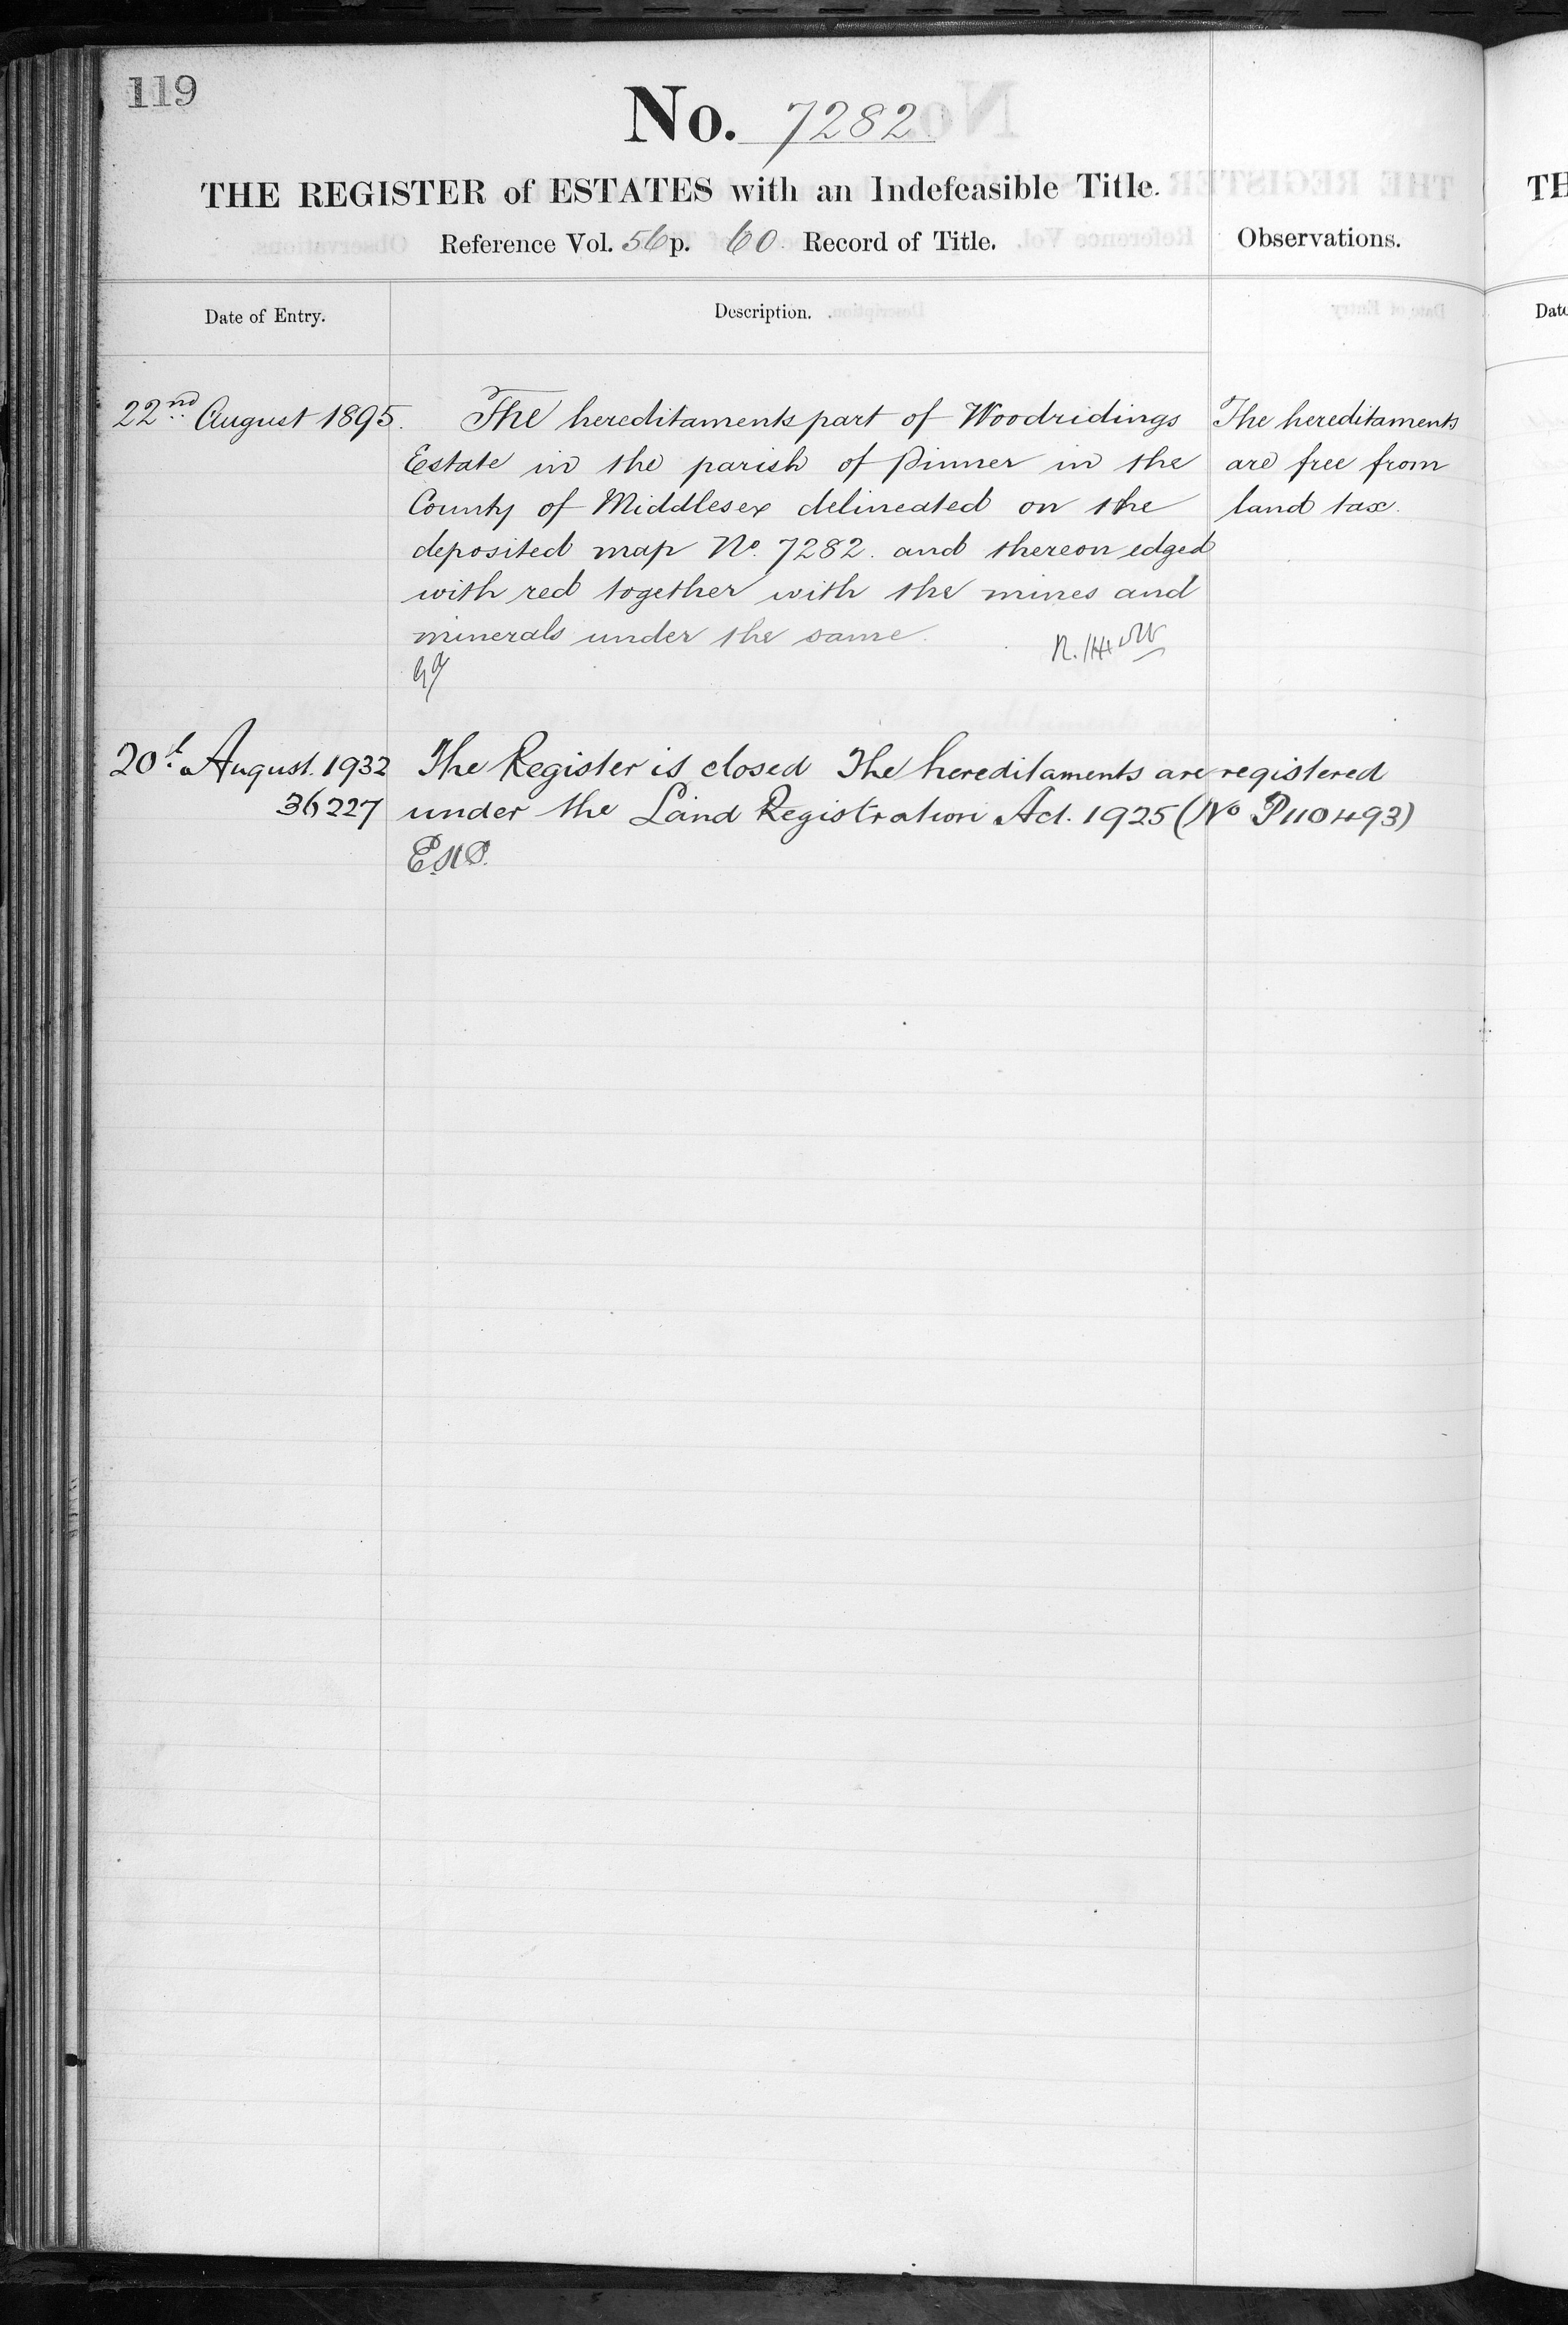 119
No. 7282
THE REGISTER of ESTATES with an Indefeasible Title.
Reference Vol. 56 p. 60 Record of Title.
Observations.
Date of Entry.
Description.
22nd August 1895.
The hereditaments part of Woodridings
Estate in the parish of Pinner in the
County of Middlesex delineated on the
deposited map No. 7282. and thereon edged
with red together with the mines and
minerals under the same.
The hereditaments
are free from
land tax.
20t August. 1932
36227
The Register is closed The hereditaments are registered
under the Land Registration Act. 1925 (No P110493)
TH
Date